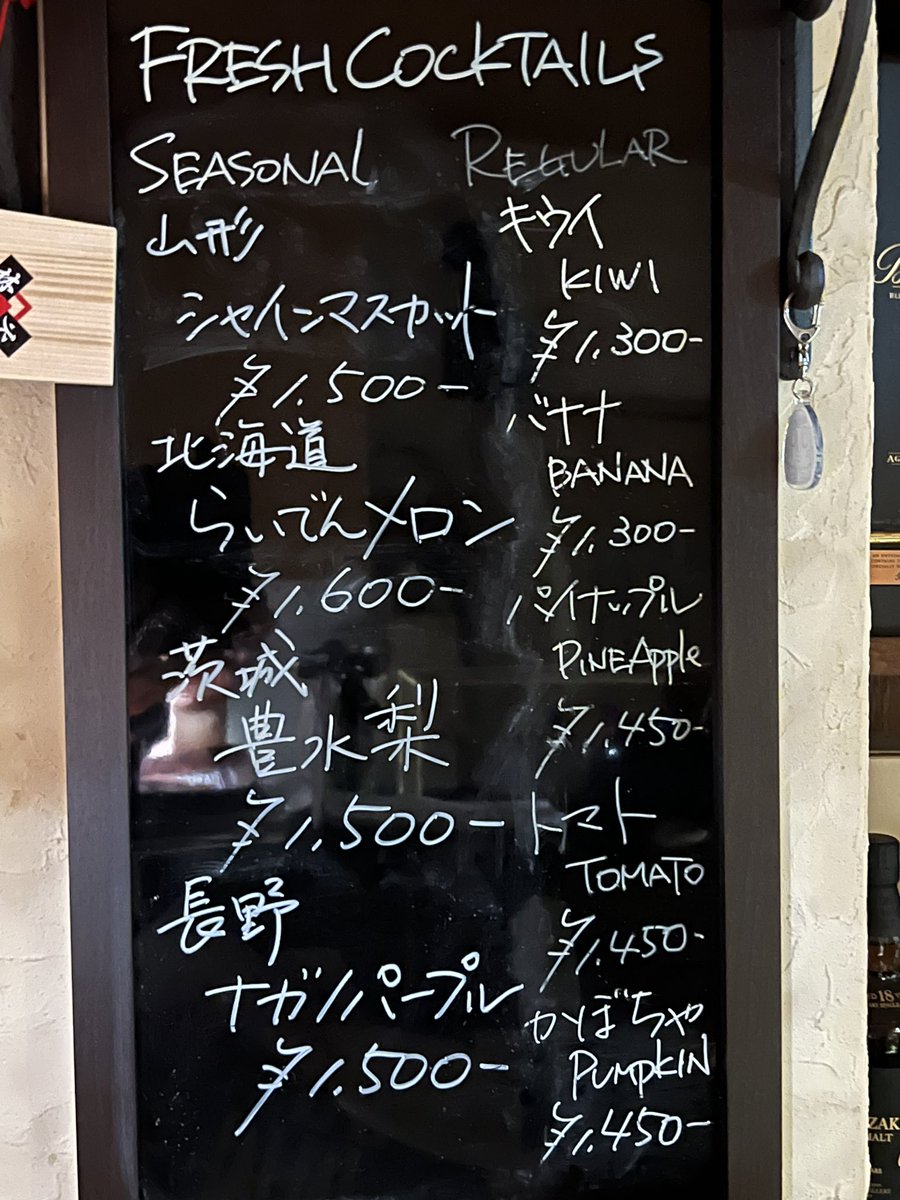 FRESH COCKTAILS
SEASONAL
山形
シャインマスカット
¥1,500-
北海道
らいでんメロン
¥1,600-
茨城
豊水梨
¥1,500-
長野
ナガノパープル
¥1,500-
REGULAR
キウイ
KIWI
¥1,300-
バナナ
BANANA
¥1,300-
パイナップル
PINEApple
¥1,450-
トマト
TOMATO
¥1,450-
かぼちゃ
PUMPKIN
¥1,450-
18